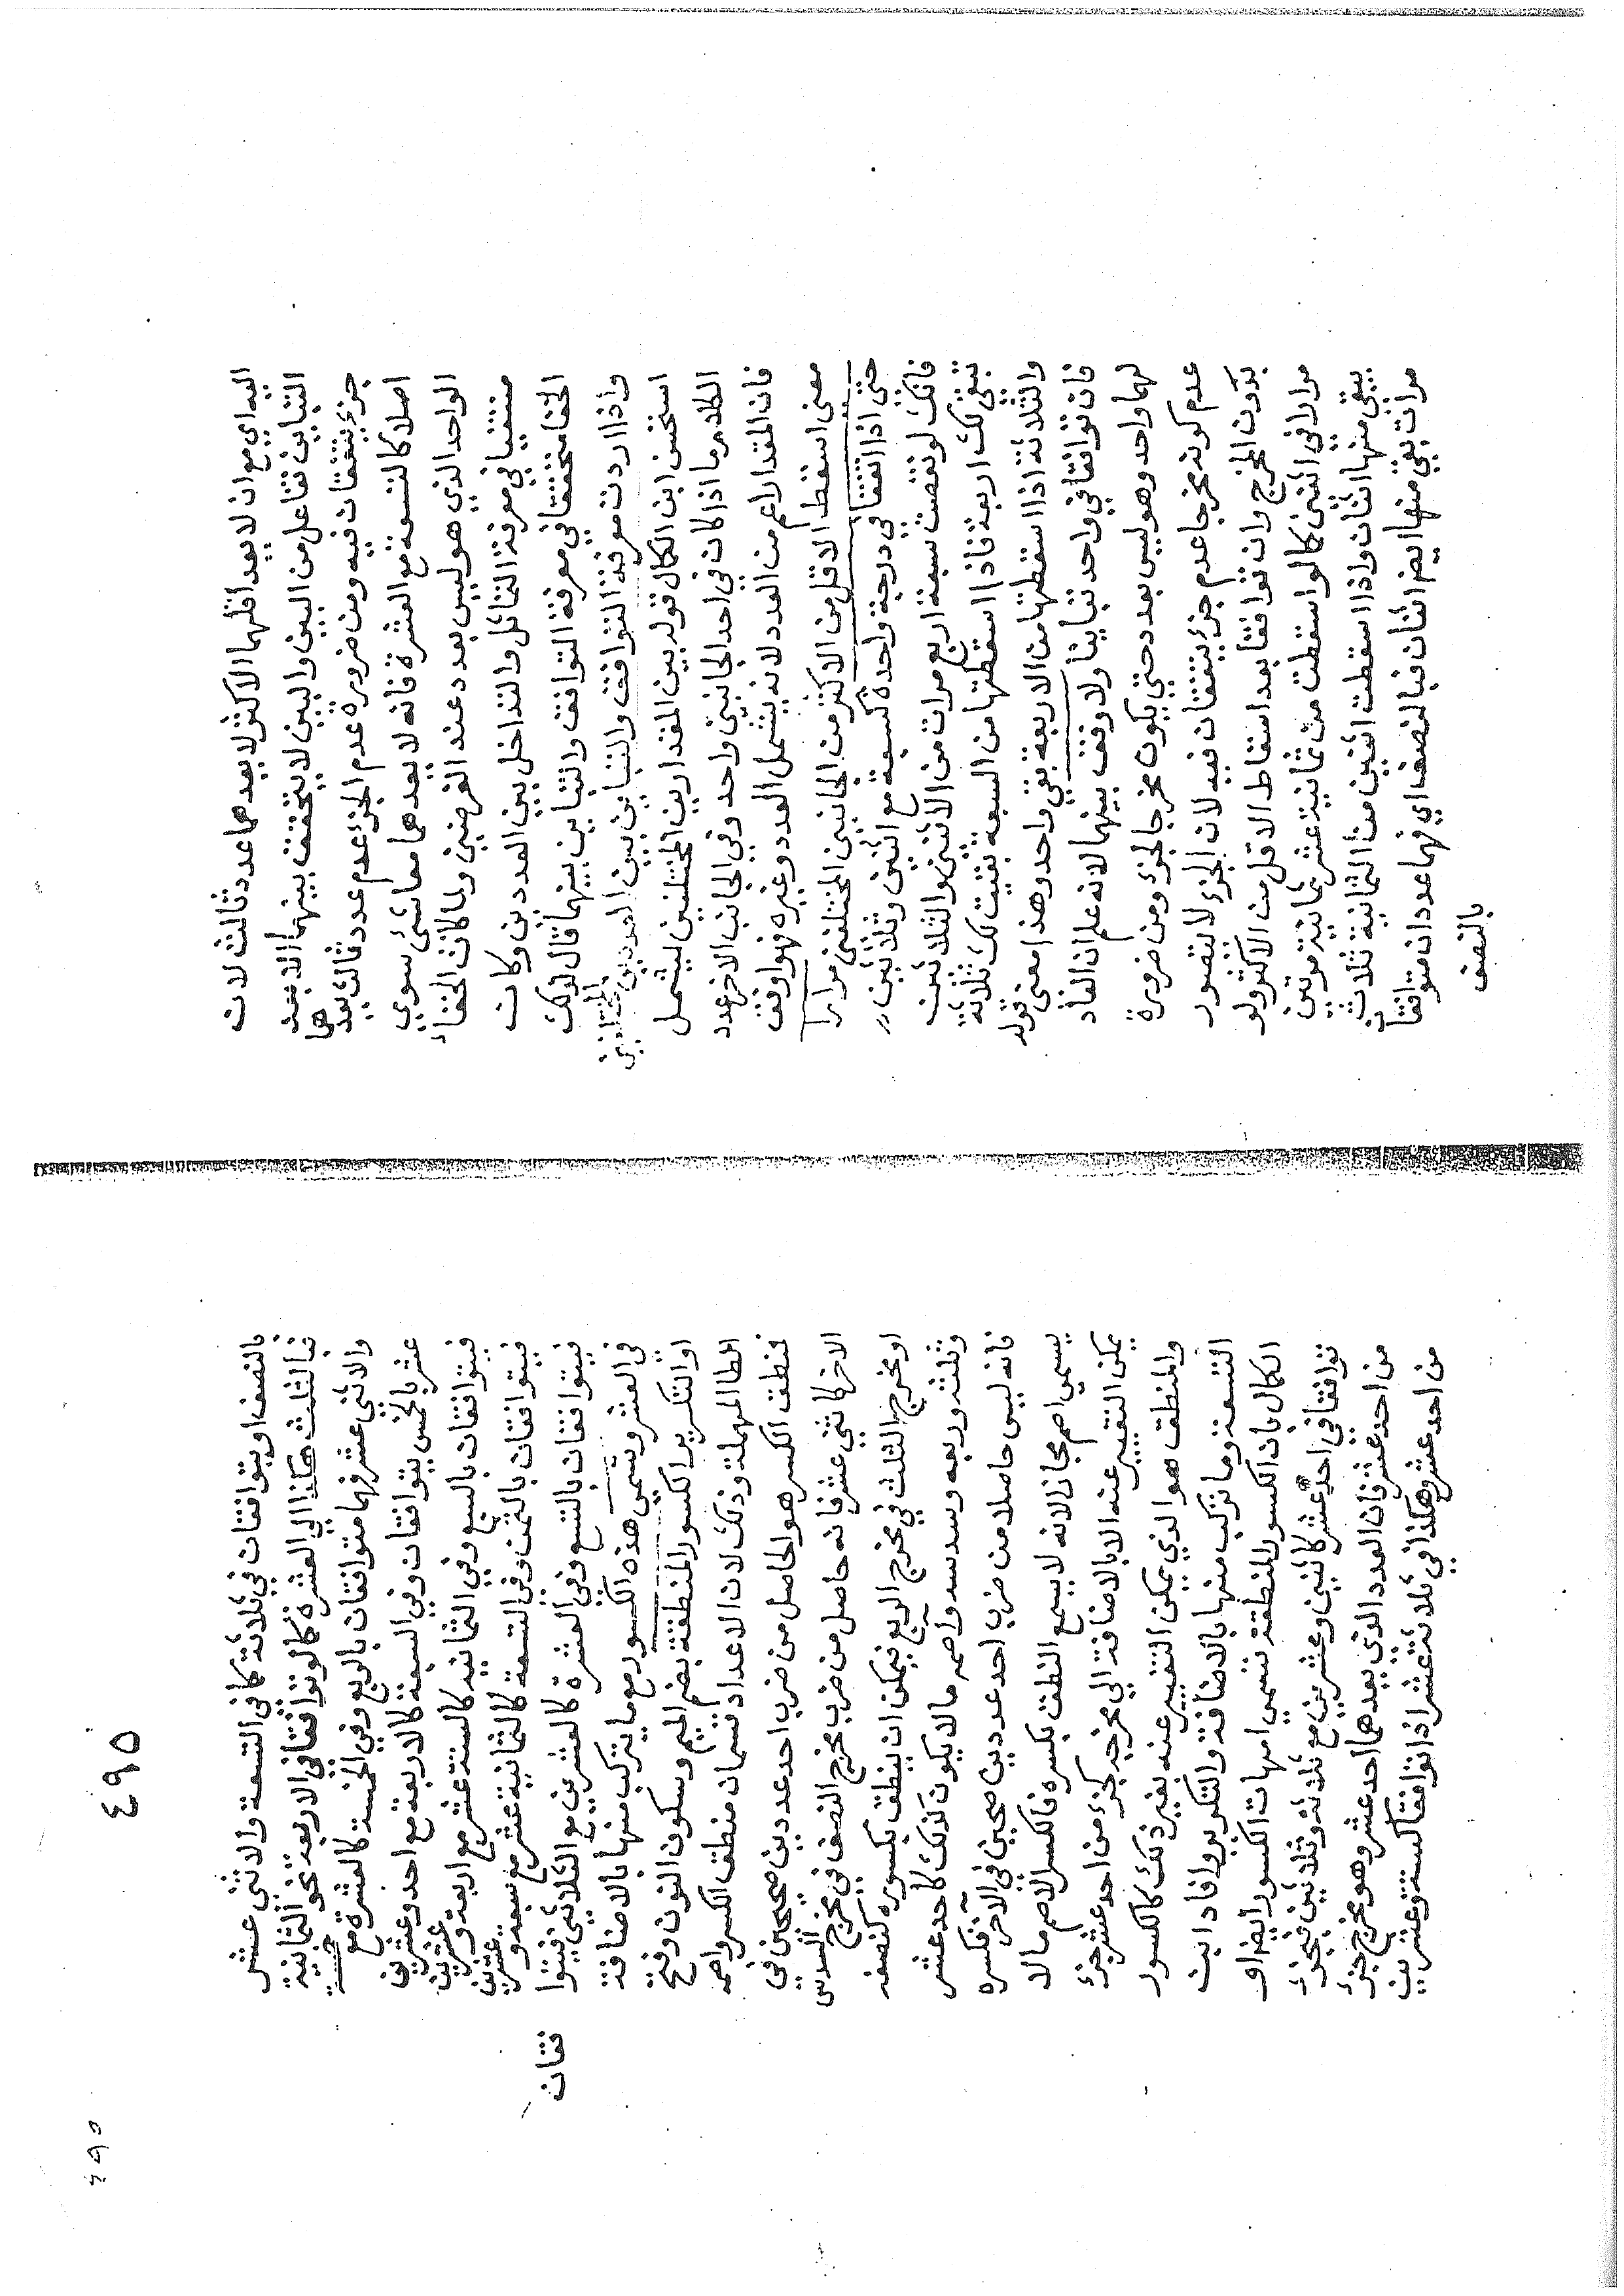 البداي مع ان لا يعد اقلهما الاكثر لا يعدهما عدد ثالث لان
التباين تفاعل من البين والبين لا يتحقق بينهما الا بعد
جزء يتفقان فيه ومن ضرورة عدم الجزء عدم عدد ثالث يعد هما
اصلا كالتسعة مع العشرة فانه لا يعدهما معا شئ سوي
الواحد الذي هو ليس بعدد عند الفرضيين ولما كان الخفاء
منتفيا في معرفة التماثل والتداخل بين العددين وكان
الخفا متحققا في معرفة التوافق والتباين بينهما قال
واذا اردت معرفة التوافق والتباين بين العددين المختلفين
استحسن ابن الكمال قوله بين المقدارين المختلفين ليشمل
الكلام ما اذا كان في احد الجانبين واحد وفي الجانب الاخر عدد
فان المقدار اعم من العدد لانه يشمل العدد وغيره فهو اوفق
معنى اسقط الاقل من الاكثر من الجانبين المختلفين مرارا
حتى اذا اتفقا في درجة واحدة كسبعة مع اثنين وثلاثين
فانك لو نقصت سبعة اربع مرات من الاثنين والثلاثين
تبقى لك اربعة فاذا اسقطتها من السبعة بقيت لك ثلاثة
والثلاثة اذا اسقطتها من الاربعة بقي واحد وهذا معنى قوله
فان توافقا في واحد تباينا ولا وفق بينهما لانه علم ان العاد
لهما واحد وهو ليس بعدد حتى يكون مخرجا لجزء ومن ضرورة
عدم كونه مخرجا عدم جزء يتفقان فيه لان الجزء لا يتصور
بدون المخرج وان توافقا بعد اسقاط الاقل من الاكثر ولو
مرارا في اثنين كما لو اسقطت من ثمانية عشر ثمانية مرتين
يبقى منها اثنان واذا اسقطت اثنين من الثمانية ثلاث
مرات بقي منها ايضا اثنان فبالنصف اي فهما عددان متوافقان
بالنصف
٤٩٥
بالنصف او يتوافقان في ثلاثة كما في التسعة والاثني عشر
فبالثلث هكذا الي العشرة كما لو توافقا في الاربعة نحو الثمانية
والاثني عشر فهما متوافقان بالربع وفي الخمسة كالعشرة مع خمسة
عشر بالخمس يتوافقان وفي السبعة كالاربعة مع احد وعشرين
فيتوافقان بالسبع وفي الثمانية كالستة عشر مع اربعة وعشرين
فيتوافقان بالثمن وفي التسعة كالثمانية عشر مع سبعة وعشرين
فيتوافقان بالتسع وفي العشرة كالعشرين مع الثلاثين فيتوا فقان
في العشر وتسمى هذه الكسور مع ما يتركب منها بالاضافة
او التكرير الكسور المنطقة بضم الميم وسكون النون وفتح
الطا المهملة وذلك لان الاعداد قسمان منطق الكسر واصمه
فمنطق الكسر هو الحاصل من ضرب احد عددين صحيحين في
الاخر كاثني عشر فانه حاصل من ضرب مخرج النصف في مخرج السدس
او مخرج الثلث في مخرج الربع فيمكن ان ينطق بكسوره كنصفه
وثلثه وربعه وسدسه واصمه ما لا يكون كذلك كاحد عشر
فانه ليس حاصلا من ضرب احد عددين صحيحين في الاخر فكسره
يسمي اصم مجازا لانه لا يسمع النطق بكسره فالكسر الاصم ما لا
يمكن التعبير عنه الا بالاضافة الي مخرجه كجزء من احد عشر جزء
والمنطق هو الذي يمكن التعبير عنه بغير ذلك كالكسور
التسعة وما تركب منها بالاضافة والتكرير وافاد ابن
الكمال بان الكسور المنطقة تسمي امهات الكسور ايضا او
توافقا في احد عشر كاثنين وعشرين مع ثلاثة وثلاثين فبجزء
من احد عشر فان العدد الذي يعدهما احد عشر وهو مخرج جزء
من احد عشر وهكذا في ثلاثة عشر اذا توافقا كستة وعشرين
٤٩٥